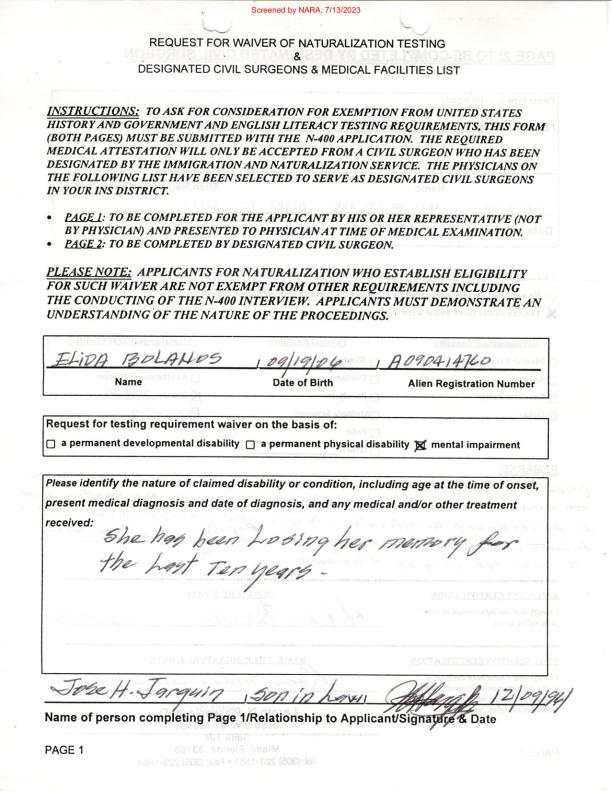 Screened by NARA, 7/13/2023
REQUEST FOR WAIVER OF NATURALIZATION TESTING
&
DESIGNATED CIVIL SURGEONS & MEDICAL FACILITIES LIST
INSTRUCTIONS: TO ASK FOR CONSIDERATION FOR EXEMPTION FROM UNITED STATES
HISTORY AND GOVERNMENT AND ENGLISH LITERACY TESTING REQUIREMENTS, THIS FORM
(BOTH PAGES) MUST BE SUBMITTED WITH THE N-400 APPLICATION. THE REQUIRED
MEDICAL ATTESTATION WILL ONLY BE ACCEPTED FROM A CIVIL SURGEON WHO HAS BEEN
DESIGNATED BY THE IMMIGRATION AND NATURALIZATION SERVICE. THE PHYSICIANS ON
THE FOLLOWING LIST HAVE BEEN SELECTED TO SERVE AS DESIGNATED CIVIL SURGEONS
IN YOUR INS DISTRICT.
• PAGE 1: TO BE COMPLETED FOR THE APPLICANT BY HIS OR HER REPRESENTATIVE (NOT
BY PHYSICIAN) AND PRESENTED TO PHYSICIAN AT TIME OF MEDICAL EXAMINATION.
• PAGE 2: TO BE COMPLETED BY DESIGNATED CIVIL SURGEON.
PLEASE NOTE: APPLICANTS FOR NATURALIZATION WHO ESTABLISH ELIGIBILITY
FOR SUCH WAIVER ARE NOT EXEMPT FROM OTHER REQUIREMENTS INCLUDING
THE CONDUCTING OF THE N-400 INTERVIEW. APPLICANTS MUST DEMONSTRATE AN
UNDERSTANDING OF THE NATURE OF THE PROCEEDINGS.
ELIDA BOLANOS 09/19/06 A090414760
Name Date of Birth Alien Registration Number
Request for testing requirement waiver on the basis of:
☐ a permanent developmental disability ☐ a permanent physical disability ☒ mental impairment
Please identify the nature of claimed disability or condition, including age at the time of onset,
present medical diagnosis and date of diagnosis, and any medical and/or other treatment
received:
She has been Losing her memory for
the Last Ten years.
Jose H. Jarquin, son in Law 12/09/96
Name of person completing Page 1/Relationship to Applicant/Signature & Date
PAGE 1